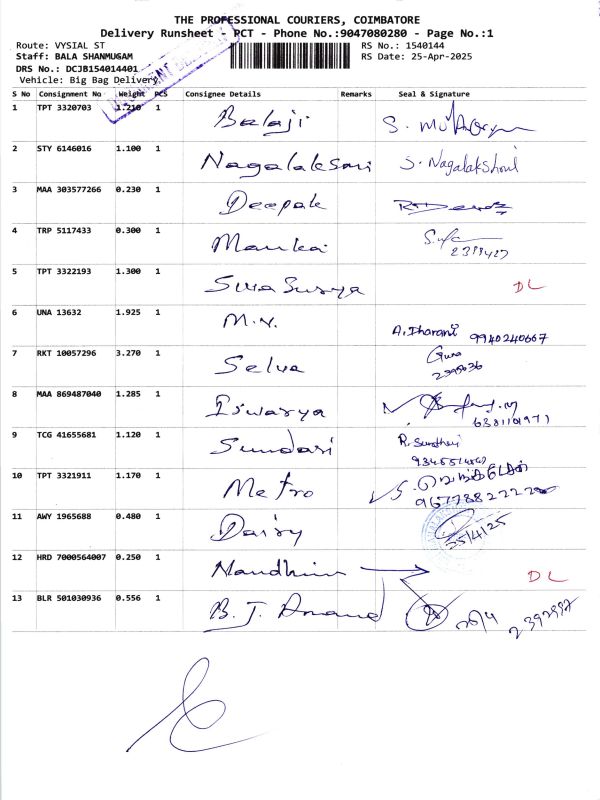 THE PROFESSIONAL COURIERS, COIMBATORE
Delivery Runsheet - PCT - Phone No.:9047080280 - Page No.:1
Route: VYSIAL ST RS No.: 1540144
Staff: BALA SHANMUGAM RS Date: 25-Apr-2025
DRS No.: DCJB154014401
Vehicle: Big Bag Delivery
S No Consignment No Weight PCS Consignee Details Remarks Seal & Signature
1 TPT 3320703 1.210 1 Balaji S.
2 STY 6146016 1.100 1 Nagalaksmi S. Nagalakshmi
3 MAA 303577266 0.230 1 Deepak
4 TRP 5117433 0.300 1 2399427
5 TPT 3322193 1.300 1 Siva Surya DL
6 UNA 13632 1.925 1 M.N. A. Dharani 9940240667
7 RKT 10057296 3.270 1 Selva Guna
2395636
8 MAA 869487040 1.285 1 Iswarya
6381101971
9 TCG 41655681 1.120 1 Sundari R.
10 TPT 3321911 1.170 1 Metro S.
11 AWY 1965688 0.480 1 Dairy 25/4/25
12 HRD 7000564007 0.250 1 Nandhini DL
13 BLR 501030936 0.556 1 B. J. Anand